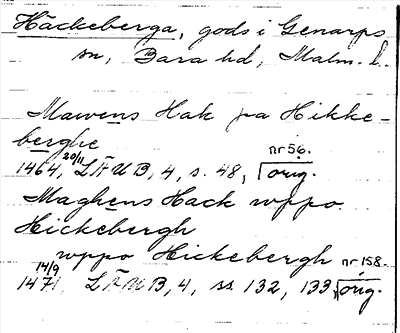 Häckeberga, gods i Genarps
sn, Bara hd, Malm. l.
Mawens Hak pa Hikke-
berghe
1464 20/11, LÄUB, 4, s. 48, nr 56. orig.
Maghens Hack vppo
Hickebergh
vppo Hickebergh nr 158.
1471 14/9, LÄUB, 4, ss 132, 133, orig.